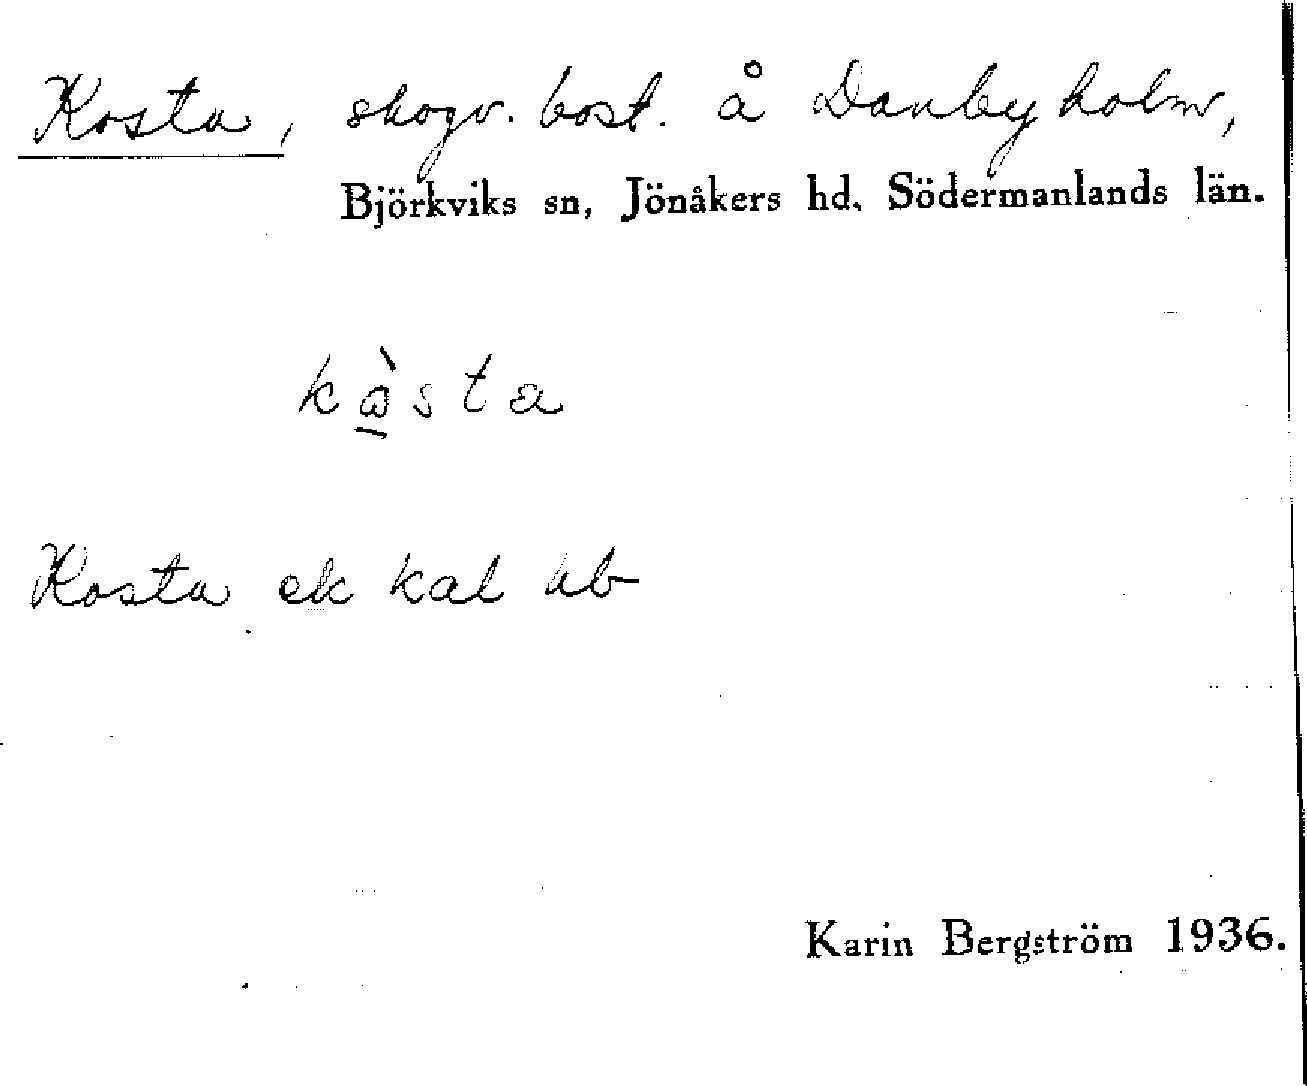 Kosta, skogv. bost. å Danbyholm,
Björkviks sn, Jönåkers hd. Södermanlands län.
kòsta
Kosta ek kal ub
Karin Bergström 1936.